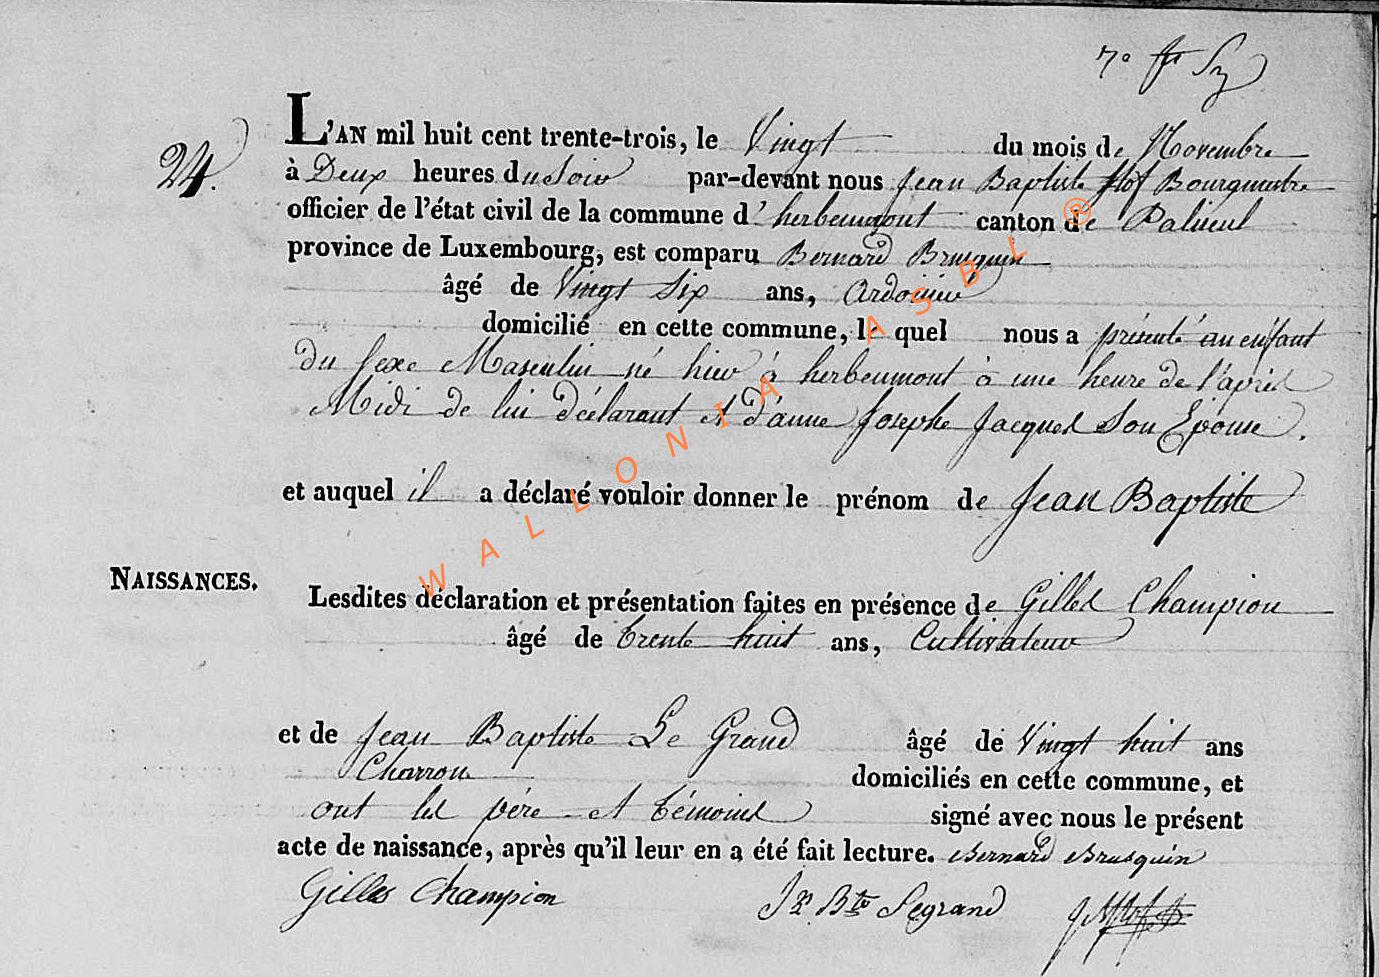 7e
24.
L'AN mil huit cent trente-trois, le Vingt du mois de Novembre
à Deux heures du Soir par-devant nous Jean Baptiste Bourgmestre
officier de l'état civil de la commune d'herbeumont canton de Paliseul
province de Luxembourg, est comparu Bernard Brusquin
âgé de Vingt Six ans, Ardoisier
domicilié en cette commune, le quel nous a présenté un enfant
du sexe Masculin né hier à herbeumont à une heure de l'après
Midi de lui déclarant et d'anne Josephe Jacques Son Epouse.
et auquel il a déclaré vouloir donner le prénom de Jean Baptiste
NAISSANCES.
Lesdites déclaration et présentation faites en présence de Gilles Champion
âgé de trente huit ans, Cultivateur
et de Jean Baptiste Le Grand âgé de Vingt huit ans
Charron domiciliés en cette commune, et
ont les père et témoins signé avec nous le présent
acte de naissance, après qu'il leur en a été fait lecture. Bernard Brusquin
Gilles Champion Jn Bte Legrand
WALLONIA ASBL ®